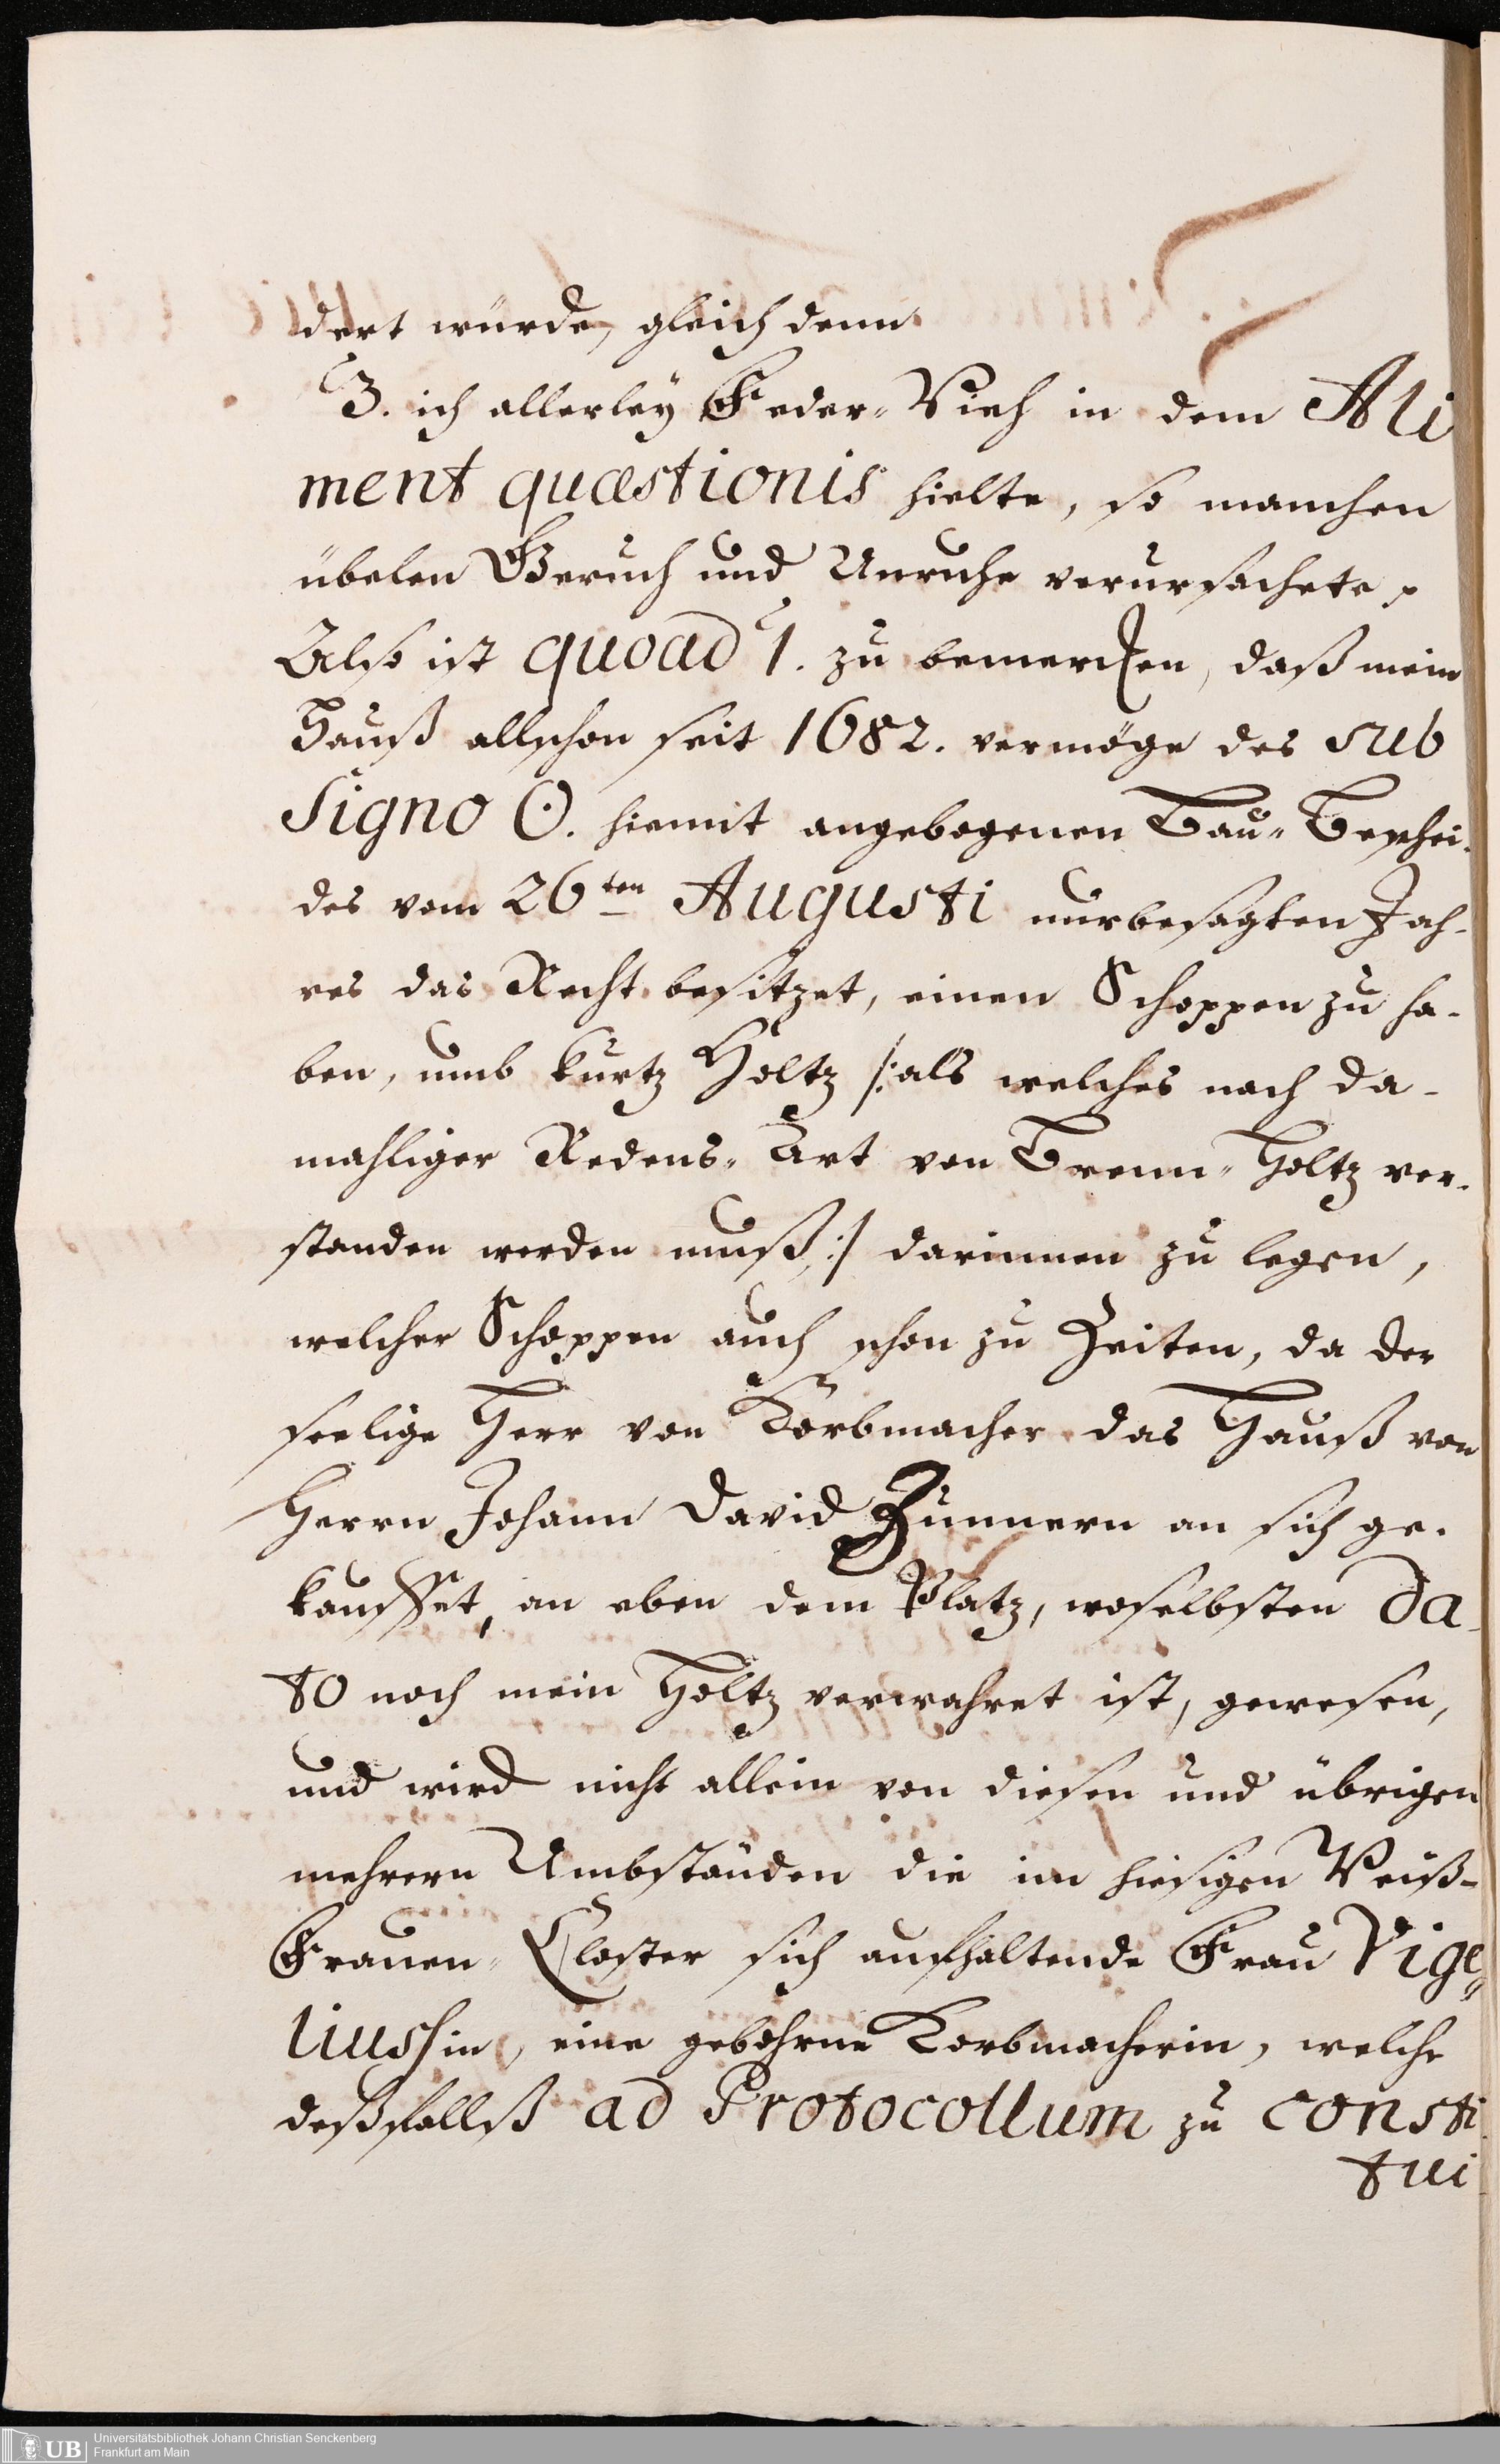 dert würde, gleich denn
3. ich allerley Feder-Vieh in dem Ali
ment quæstionis hielte, so manchen
übelen Geruch und Unruhe verursachete,
Also ist quoad 1. zu bemercken, daß mein
Hauß allschon seit 1682. vermöge des sub
signo ⊙. hiemit angebogenen Bau-Beschei-
des vom 26ten Augusti nurbesagten Jah-
res das Recht besitzet, einen Schoppen zu ha-
ben, umb kurtz Holtz /: als welches nach da-
mahliger Redens-Art von Brenn-Holtz ver-
standen werden muß :/ darinnen zu legen,
welcher Schoppen auch schon zu Zeiten, da der
seelige Herr von Korbmacher das Hauß von
Herrn Johann David Zunnern an sich ge-
kauffet, an eben dem Platz, woselbsten da-
to noch mein Holtz verwahret ist, gewesen,
und wird nicht allein von diesen und übrigen
mehrern Umbständen die im hiesigen Weiß-
Frauen-Closter sich aufhaltende Frau Vige-
liussin, eine gebohrne Korbmacherin, welche
deßfallß ad Protocollum zu consti-
tui
UB
Universitätsbibliothek Johann Christian Senckenberg
Frankfurt am Main